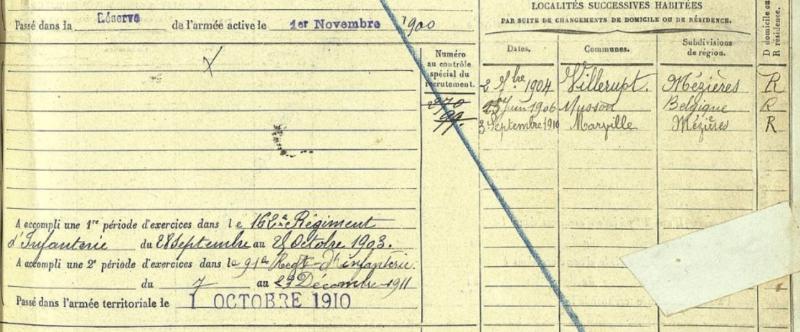 Passé dans la Réserve de l'armée active le 1er Novembre 1900
Numéro
au contrôle
spécial du
recrutement.
270
99
LOCALITÉS SUCCESSIVES HABITÉES
PAR SUITE DE CHANGEMENTS DE DOMICILE OU DE RÉSIDENCE.
Dates. Communes. Subdivisions
de région.
D domicile ou
R résidence.
2 7bre 1904 Villerupt. Mézières R
25 Juin 1906 Musson Belgique R
3 Septembre 1910 Marville Mézières R
A accompli une 1re période d'exercices dans le 162e Régiment
d'Infanterie du 28 Septembre au 25 Octobre 1903.
A accompli une 2e période d'exercices dans le 91e Regt d'infanterie.
du 7 au 23 Décembre 1911
Passé dans l'armée territoriale le 1 OCTOBRE 1910